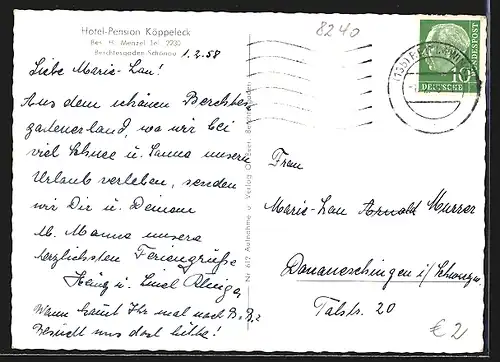 Hotel-Pension Köppeleck
Bes. H. Menzel Tel. 2230
Berchtesgaden-Schönau
1.2.58
8240
Liebe Marie-Lou!
Aus dem schönen Berchtes-
gadenerland, wo wir bei
viel Schnee u. Sonne unsern
Urlaub verleben, senden
wir Dir u. Deinem
lb. Manne unsere
herzlichsten Feriengrüße
Heinz u.
Wann kommt Ihr mal nach B.B.?
Besucht uns doch bitte!
Nr. 617 Aufnahme u. Verlag
DEUTSCHE
BUNDESPOST
10
Frau
Marie-Lou Arnold
Donaueschingen i/Schwarzw.
Talstr. 20
€ 2